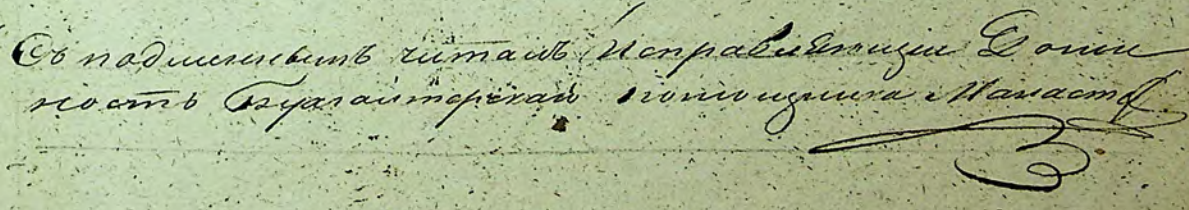 Съ подлиннымъ читалъ Исправляющій Долж
ность Бухгалтерскаго помощника